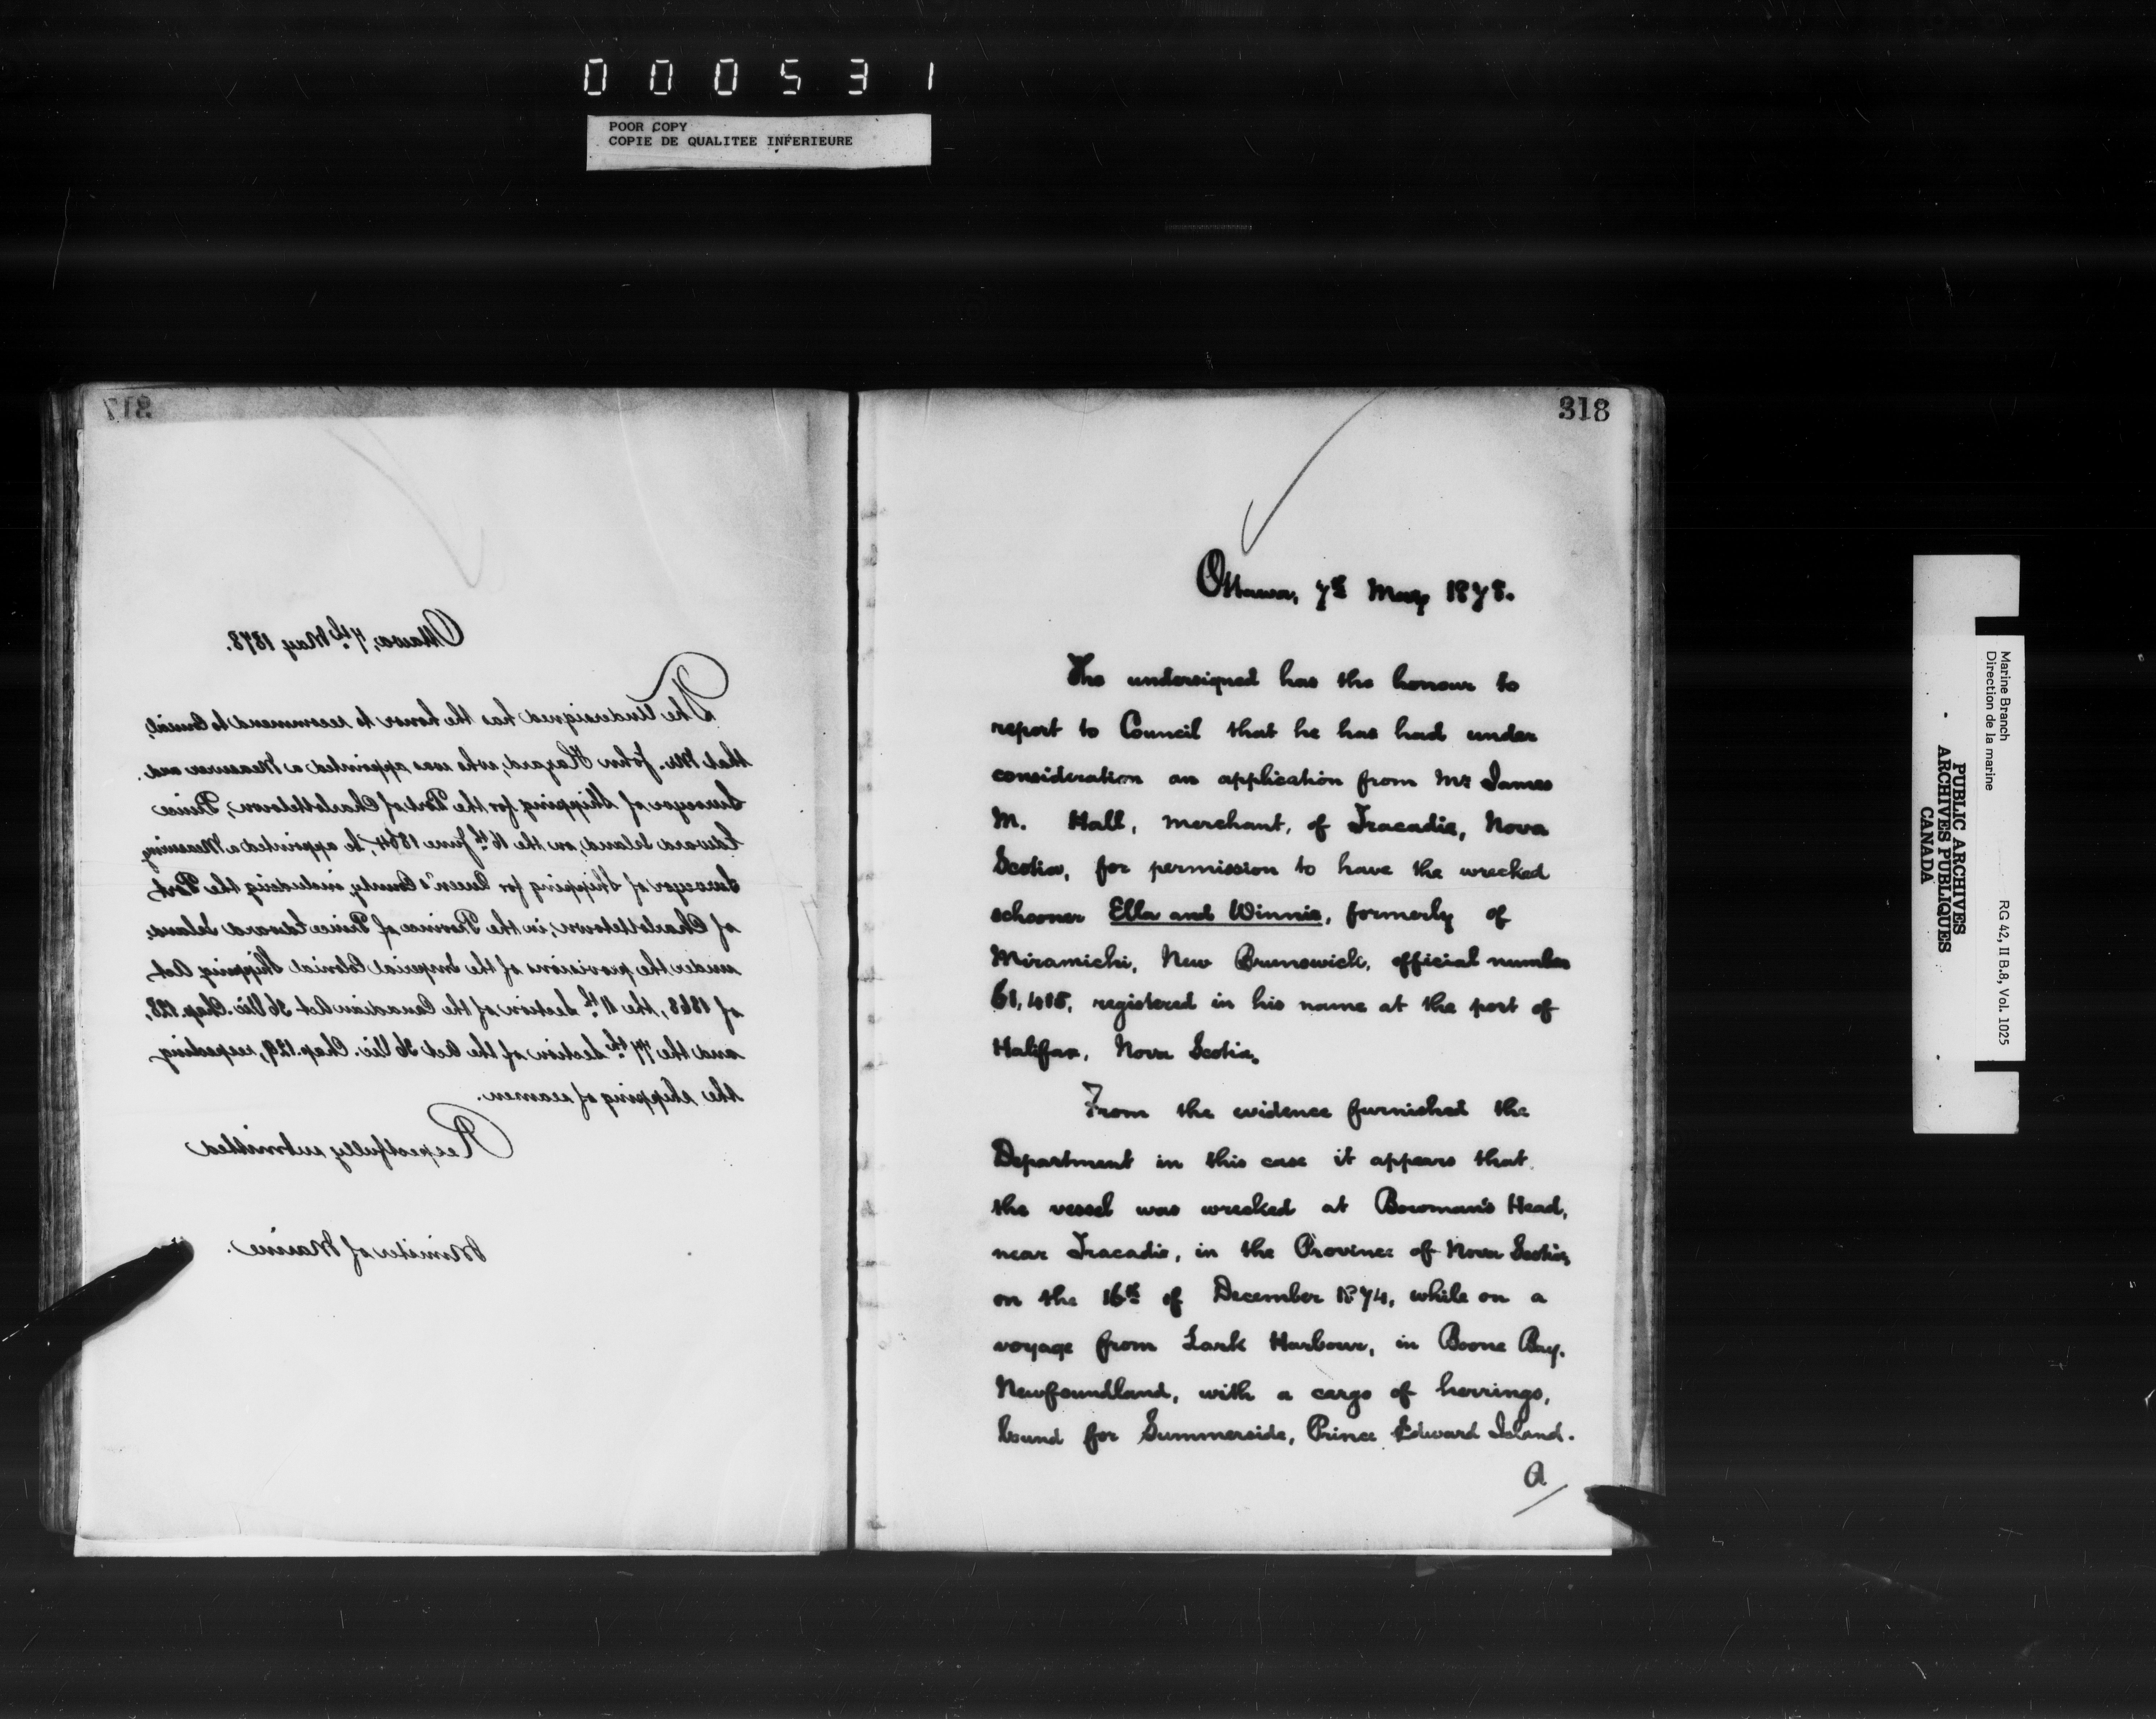 000531
POOR COPY
COPIE DE QUALITEE INFERIEURE
317
Ottawa, 7th May 1878.
The Undersigned has the honor to recommend to Council,
that Mr. John Hazard, who was appointed a Measurer and
Surveyor of Shipping for the Port of Charlottetown, Prince
Edward Island, on the 16th June 1864, be appointed a Measuring
Surveyor of Shipping for Queen's County, including the Port
of Charlottetown, in the Province of Prince Edward Island,
under the provisions of the Imperial Colonial Shipping Act
of 1868, the 11th Section of the Canadian Act 36 Vic. Chap. 128,
and the Section of the Act 36 Vic. Chap. 129, respecting
the shipping of seamen.
Respectfully submitted
Minister of Marine.
318
Ottawa, 7th May 1878.
The undersigned has the honour to
report to Council that he has had under
consideration an application from Mr James
M. Hall, merchant, of Tracadie, Nova
Scotia, for permission to have the wrecked
schooner Ella and Winnie, formerly of
Miramichi, New Brunswick, official number
61,418, registered in his name at the port of
Halifax, Nova Scotia.
From the evidence furnished the
Department in this case it appears that
the vessel was wrecked at Bowman's Head,
near Tracadie, in the Province of Nova Scotia,
on the 16th of December 1874, while on a
voyage from Lark Harbour, in Boone Bay,
Newfoundland, with a cargo of herrings,
bound for Summerside, Prince Edward Island.
A
Marine Branch
Direction de la marine
RG 42, II B.8, Vol. 1025
PUBLIC ARCHIVES
ARCHIVES PUBLIQUES
CANADA